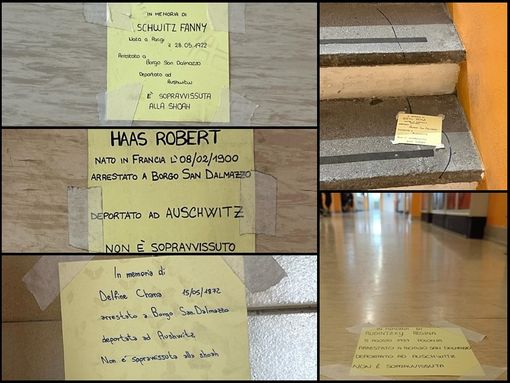 IN MEMORIA DI
SCHWITZ FANNY
Nata a Parigi
il 28.05.1922
Arrestata a
Borgo San Dalmazzo
Deportata ad
Auschwitz
È SOPRAVVISSUTA
ALLA SHOAH
HAAS ROBERT
NATO IN FRANCIA L'08/02/1900
ARRESTATO A BORGO SAN DALMAZZO
DEPORTATO AD AUSCHWITZ
NON È SOPRAVVISSUTO
In memoria di
Delfine Chana 15/05/1872
arrestato a Borgo San Dalmazzo
deportata ad
Auschwitz
Non è sopravvissuta alla shoah
IN MEMORIA DI
REGINA
ARRESTATA A BORGO SAN DALMAZZO
DEPORTATO AD AUSCHWITZ
NON È SOPRAVVISSUTA